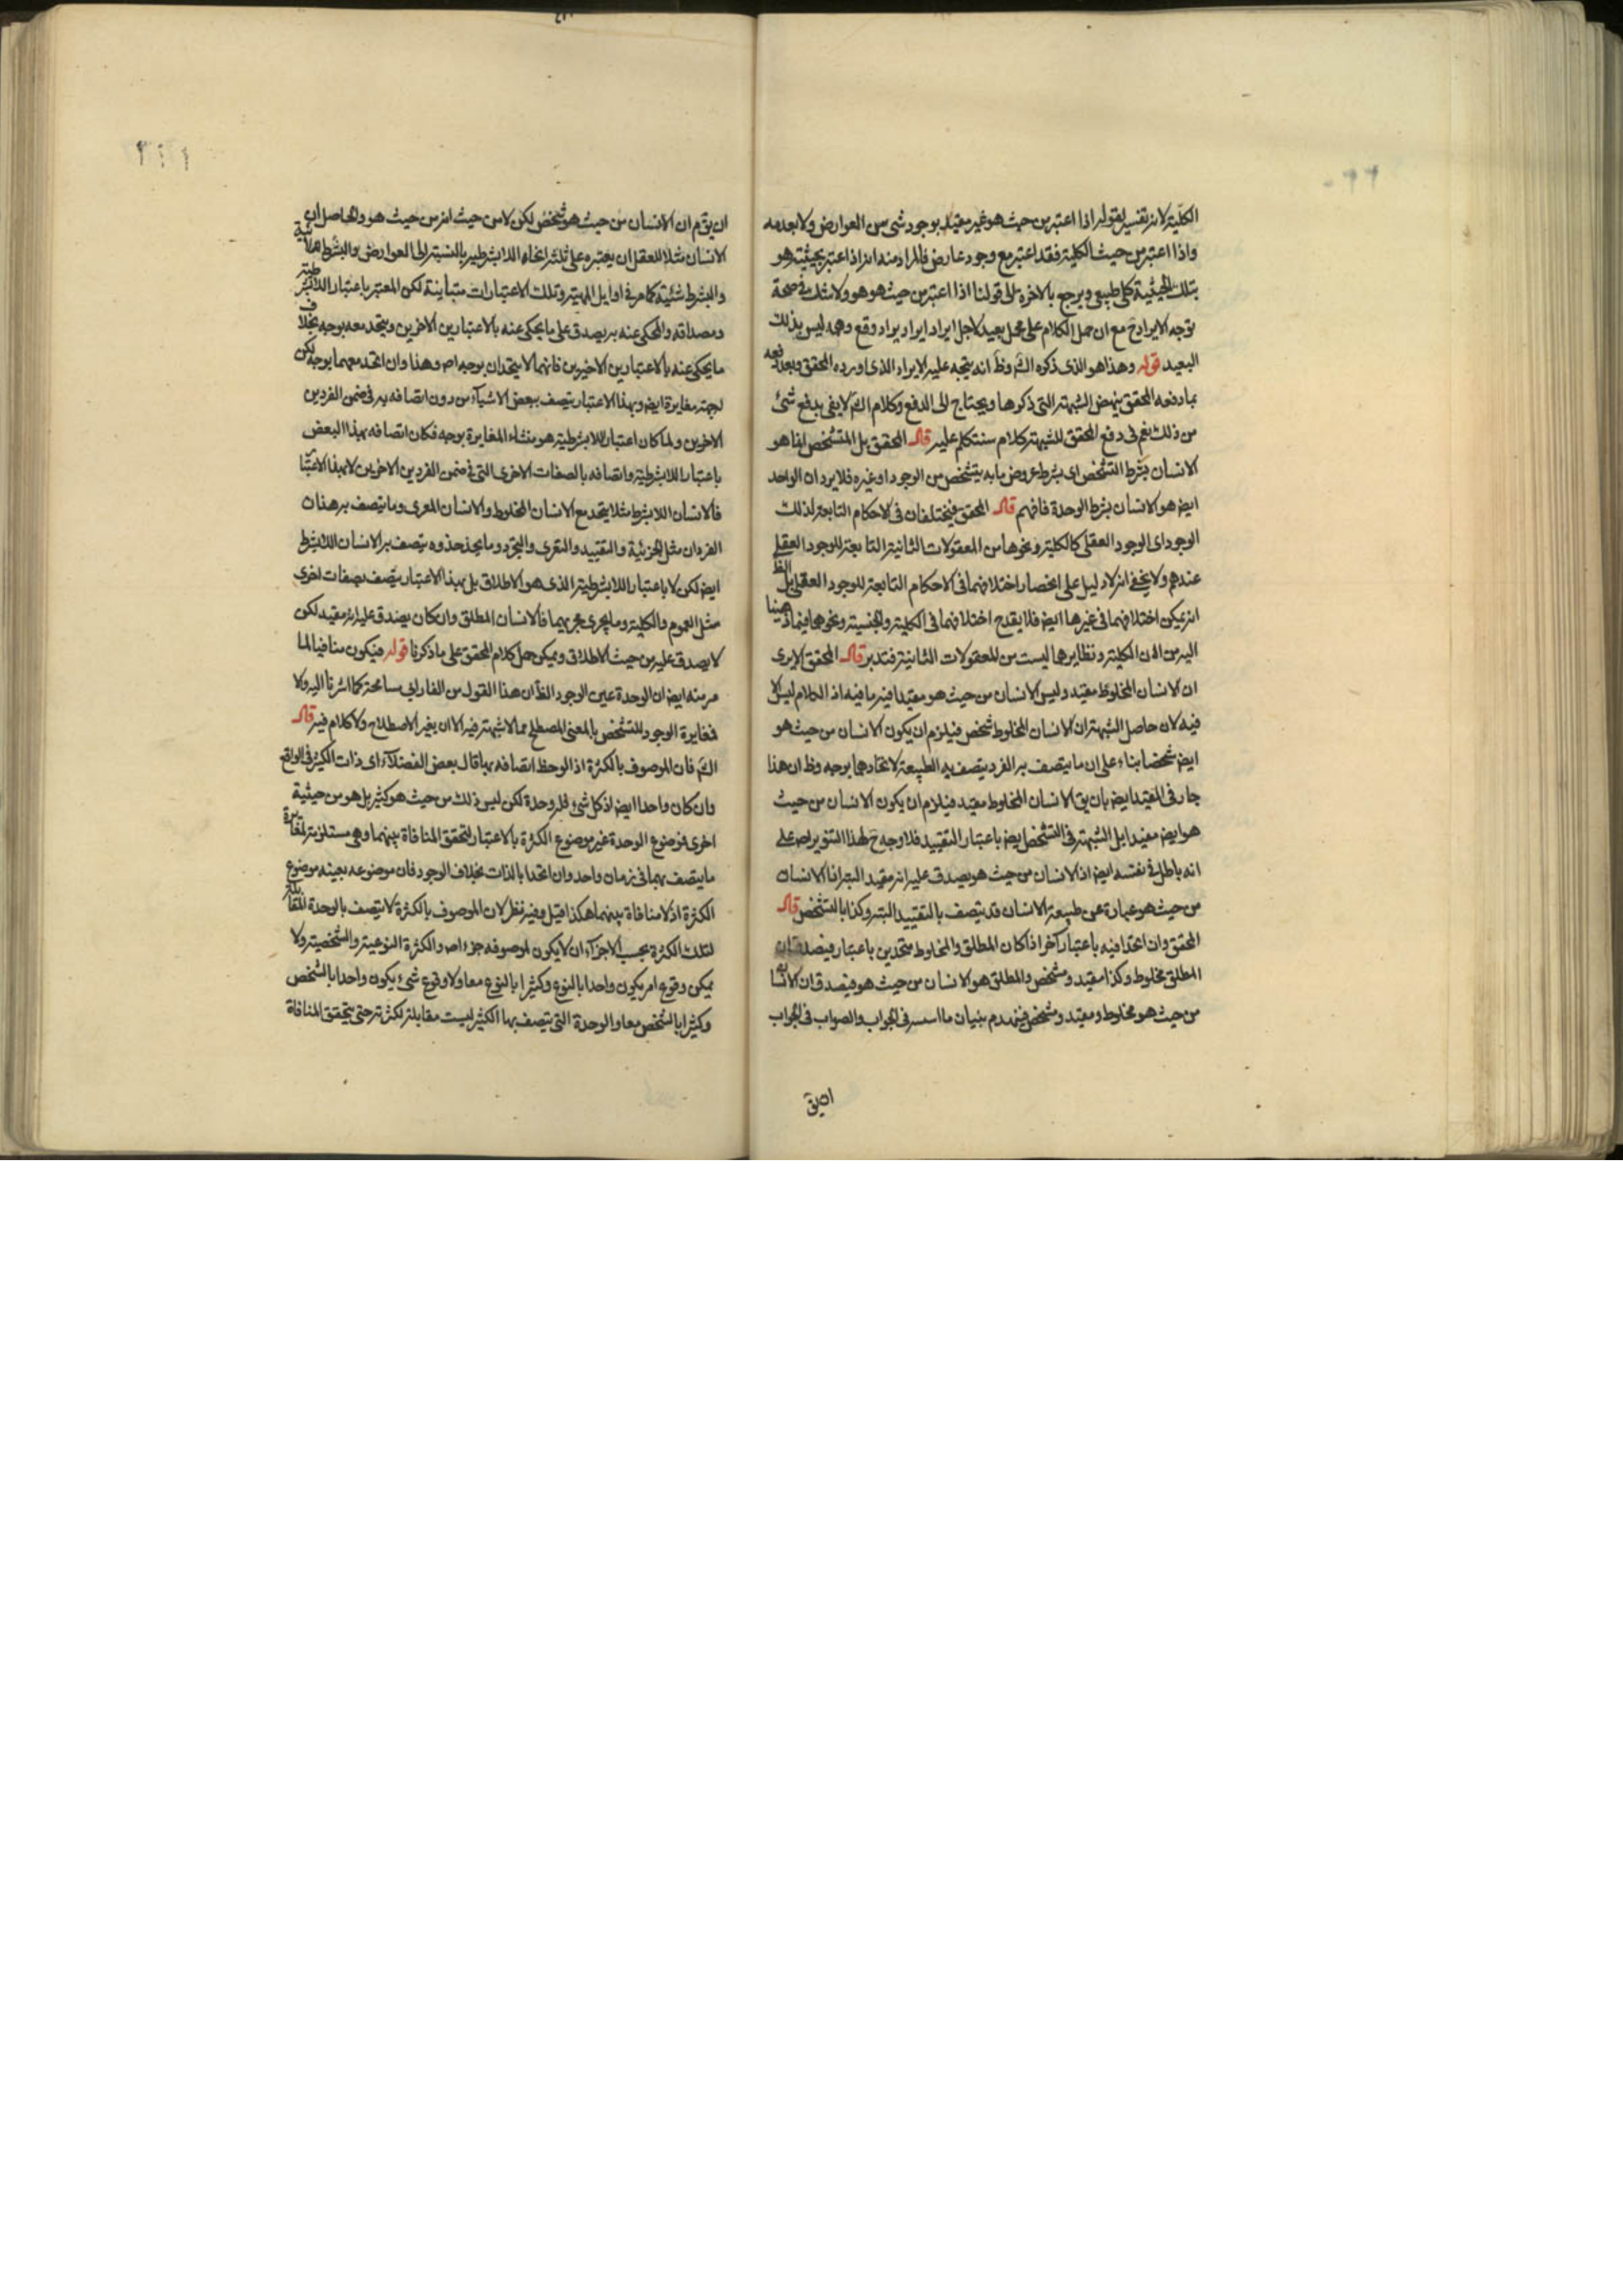 الكلية لانه تفسير لقوله اذا اعتبر من حيث هو غير مقيد بوجود شئ من العوارض ولا بعدمه
واذا اعتبر من حيث الكلية فقد اعتبر مع وجود عارض فالمراد منه انه اذا اعتبر بحيثية هو
بتلك الحيثية كلى طبيعى ويرجع بالاخرة الى قولنا اذا اعتبر من حيث هو هو ولا شك فى صحة
توجه الايراد ح مع ان حمل الكلام على محمل بعيد لاجل ايراد ايراد يراد وقع وهمه ليس بذلك
البعيد قوله وهذا هو الذى ذكره الش وظ انه يتجه عليه الايراد الذى اورده المحقق وبعد دفعه
بما دفعه المحقق ينهض الشبهة التى ذكرها ويحتاج الى الدفع وكلام الش لا يفى بدفع شئ
من ذلك نعم فى دفع المحقق للشبهة كلام سنتكلم عليه قال المحقق بل المتشخص انما هو
الانسان بشرط التشخص اى بشرط عروض ما به يتشخص من الوجود او غيره فلا يرد ان الواحد
ايض هو الانسان بشرط الوحدة فافهم قال المحقق فيختلفان فى الاحكام التابعة لذلك
الوجود اى الوجود العقلى كالكلية ونحوها من المعقولات الثانية التابعة للوجود العقلى
عندهم ولا يخفى انه لا دليل على انحصار اختلافهما فى الاحكام التابعة للوجود العقلى بل الظ
انه يمكن اختلافهما فى غيرها ايض فلا يقدح اختلافهما فى الكلية والجنسية ونحوها فيما ذهبنا
اليه من ان الكلية ونظايرها ليست من المعقولات الثانية فتدبر قال المحقق الا يرى
ان الانسان المخلوط مقيد وليس الانسان من حيث هو مقيدا فيه ما فيه اذ الكلام ليس الا
فيه لان حاصل الشبهة ان الانسان المخلوط شخص فيلزم ان يكون الانسان من حيث هو
ايض شخصا بناء على ان ما يتصف به الفرد يتصف به الطبيعة لاتحادها بوجه وظ ان هذا
جار فى المقيد ايض بان يق الانسان المخلوط مقيد فيلزم ان يكون الانسان من حيث
هو ايض مقيدا بل الشبهة فى التشخص ايض باعتبار التقييد فلا وجه ح لهذا التنوير اص على
انه باطل فى نفسه ايض اذ الانسان من حيث هو يصدق عليه انه مقيد البتة اذ الانسان
من حيث هو عبارة عن طبيعة الانسان قد يتصف بالتقييد البتة وكذا بالتشخص قال
المحقق وان اتحدا فيه باعتبار آخر اذا كان المطلق والمخلوط متحدين باعتبار فيصدق ان
المطلق مخلوط وكذا مقيد ومشخص والمطلق هو الانسان من حيث هو فيصدق ان الانسان
من حيث هو مخلوط ومقيد ومشخص فينهدم بنيان ما اسسه فى الجواب والصواب فى الجواب
ان يق
ان يق م ان الانسان من حيث هو شخص لكن لا من حيث انه من حيث هو والحاصل ان
الانسان مثلا للعقل ان يعتبره على ثلثة انحاء اللابشرطية بالنسبة الى العوارض والبشرط لائية
والبشرط شيئية كما مر فى اوايل المهية وتلك الاعتبارات متباينة لكن المعتبر باعتبار اللابشرطية
ومصداقه والمحكى عنه به يصدق على ما يحكى عنه بالاعتبارين الاخرين ويتحد معه بوجه بخلاف
ما يحكى عنه بالاعتبارين الاخيرين فانهما لا يتحدان بوجه اص وهذا وان اتحد معهما بوجه لكن
لجهة مغايرة ايض وبهذا الاعتبار يتصف ببعض الاشياء من دون اتصافه به فى ضمن الفردين
الاخرين ولما كان اعتبار اللابشرطية هو منشاء المغايرة بوجه فكان اتصافه بهذا البعض
باعتبار اللابشرطية واتصافه بالصفات الاخرى التى فى ضمن الفردين الاخرين لا بهذا الاعتبار
فالانسان اللابشرط مثلا يتحد مع الانسان المخلوط والانسان المعرى وما يتصف به هذان
الفردان مثل الجزئية والتقييد والتعرى والتجرد وما يحذ حذوه يتصف به الانسان اللابشرط
ايض لكن لا باعتبار اللابشرطية الذى هو الاطلاق بل بهذا الاعتبار يتصف بصفات اخرى
مثل العموم والكلية وما يجرى مجريهما فالانسان المطلق وان كان يصدق عليه انه مقيد لكن
لا يصدق عليه من حيث الاطلاق ويمكن حمل كلام المحقق على ما ذكرنا قوله فيكون منافيا لما
مر منه ايض ان الوحدة عين الوجود الظ ان هذا القول من الفارابى مسامحة كما اشرنا اليه ولا
فمغايرة الوجود للتشخص بالمعنى المصطلح مما لا شبهة فيه الا ان يغير الاصطلاح ولا كلام فيه قال
الش فان الموصوف بالكثرة اذ الوحظ اتصافه بها قال بعض الفضلآء اى ذات الكثير فى الواقع
وان كان واحدا ايض اذ كل شئ فله وحدة لكن ليس ذلك من حيث هو كثير بل هو من حيثية
اخرى فموضوع الوحدة غير موضوع الكثرة بالاعتبار لتحقق المنافاة بينهما وهى مستلزمة لمغايرة
ما يتصف بهما فى زمان واحد وان اتحدا بالذات بخلاف الوجود فان موضوعه بعينه موضوع
الكثرة اذ لا منافاة بينهما هكذا قيل وفيه نظر لان الموصوف بالكثرة لا يتصف بالوحدة المقابلة
لتلك الكثرة بحسب الاجزاء ان لا يكون لموصوفه جزء اص والكثرة النوعية والشخصية ولا
يمكن وقوع امر يكون واحدا بالنوع وكثيرا بالنوع معا ولا وقوع شئ يكون واحدا بالشخص
وكثيرا بالشخص معا والوحدة التى يتصف بها الكثير ليست مقابلة لكثرته حتى يتحقق المنافاة